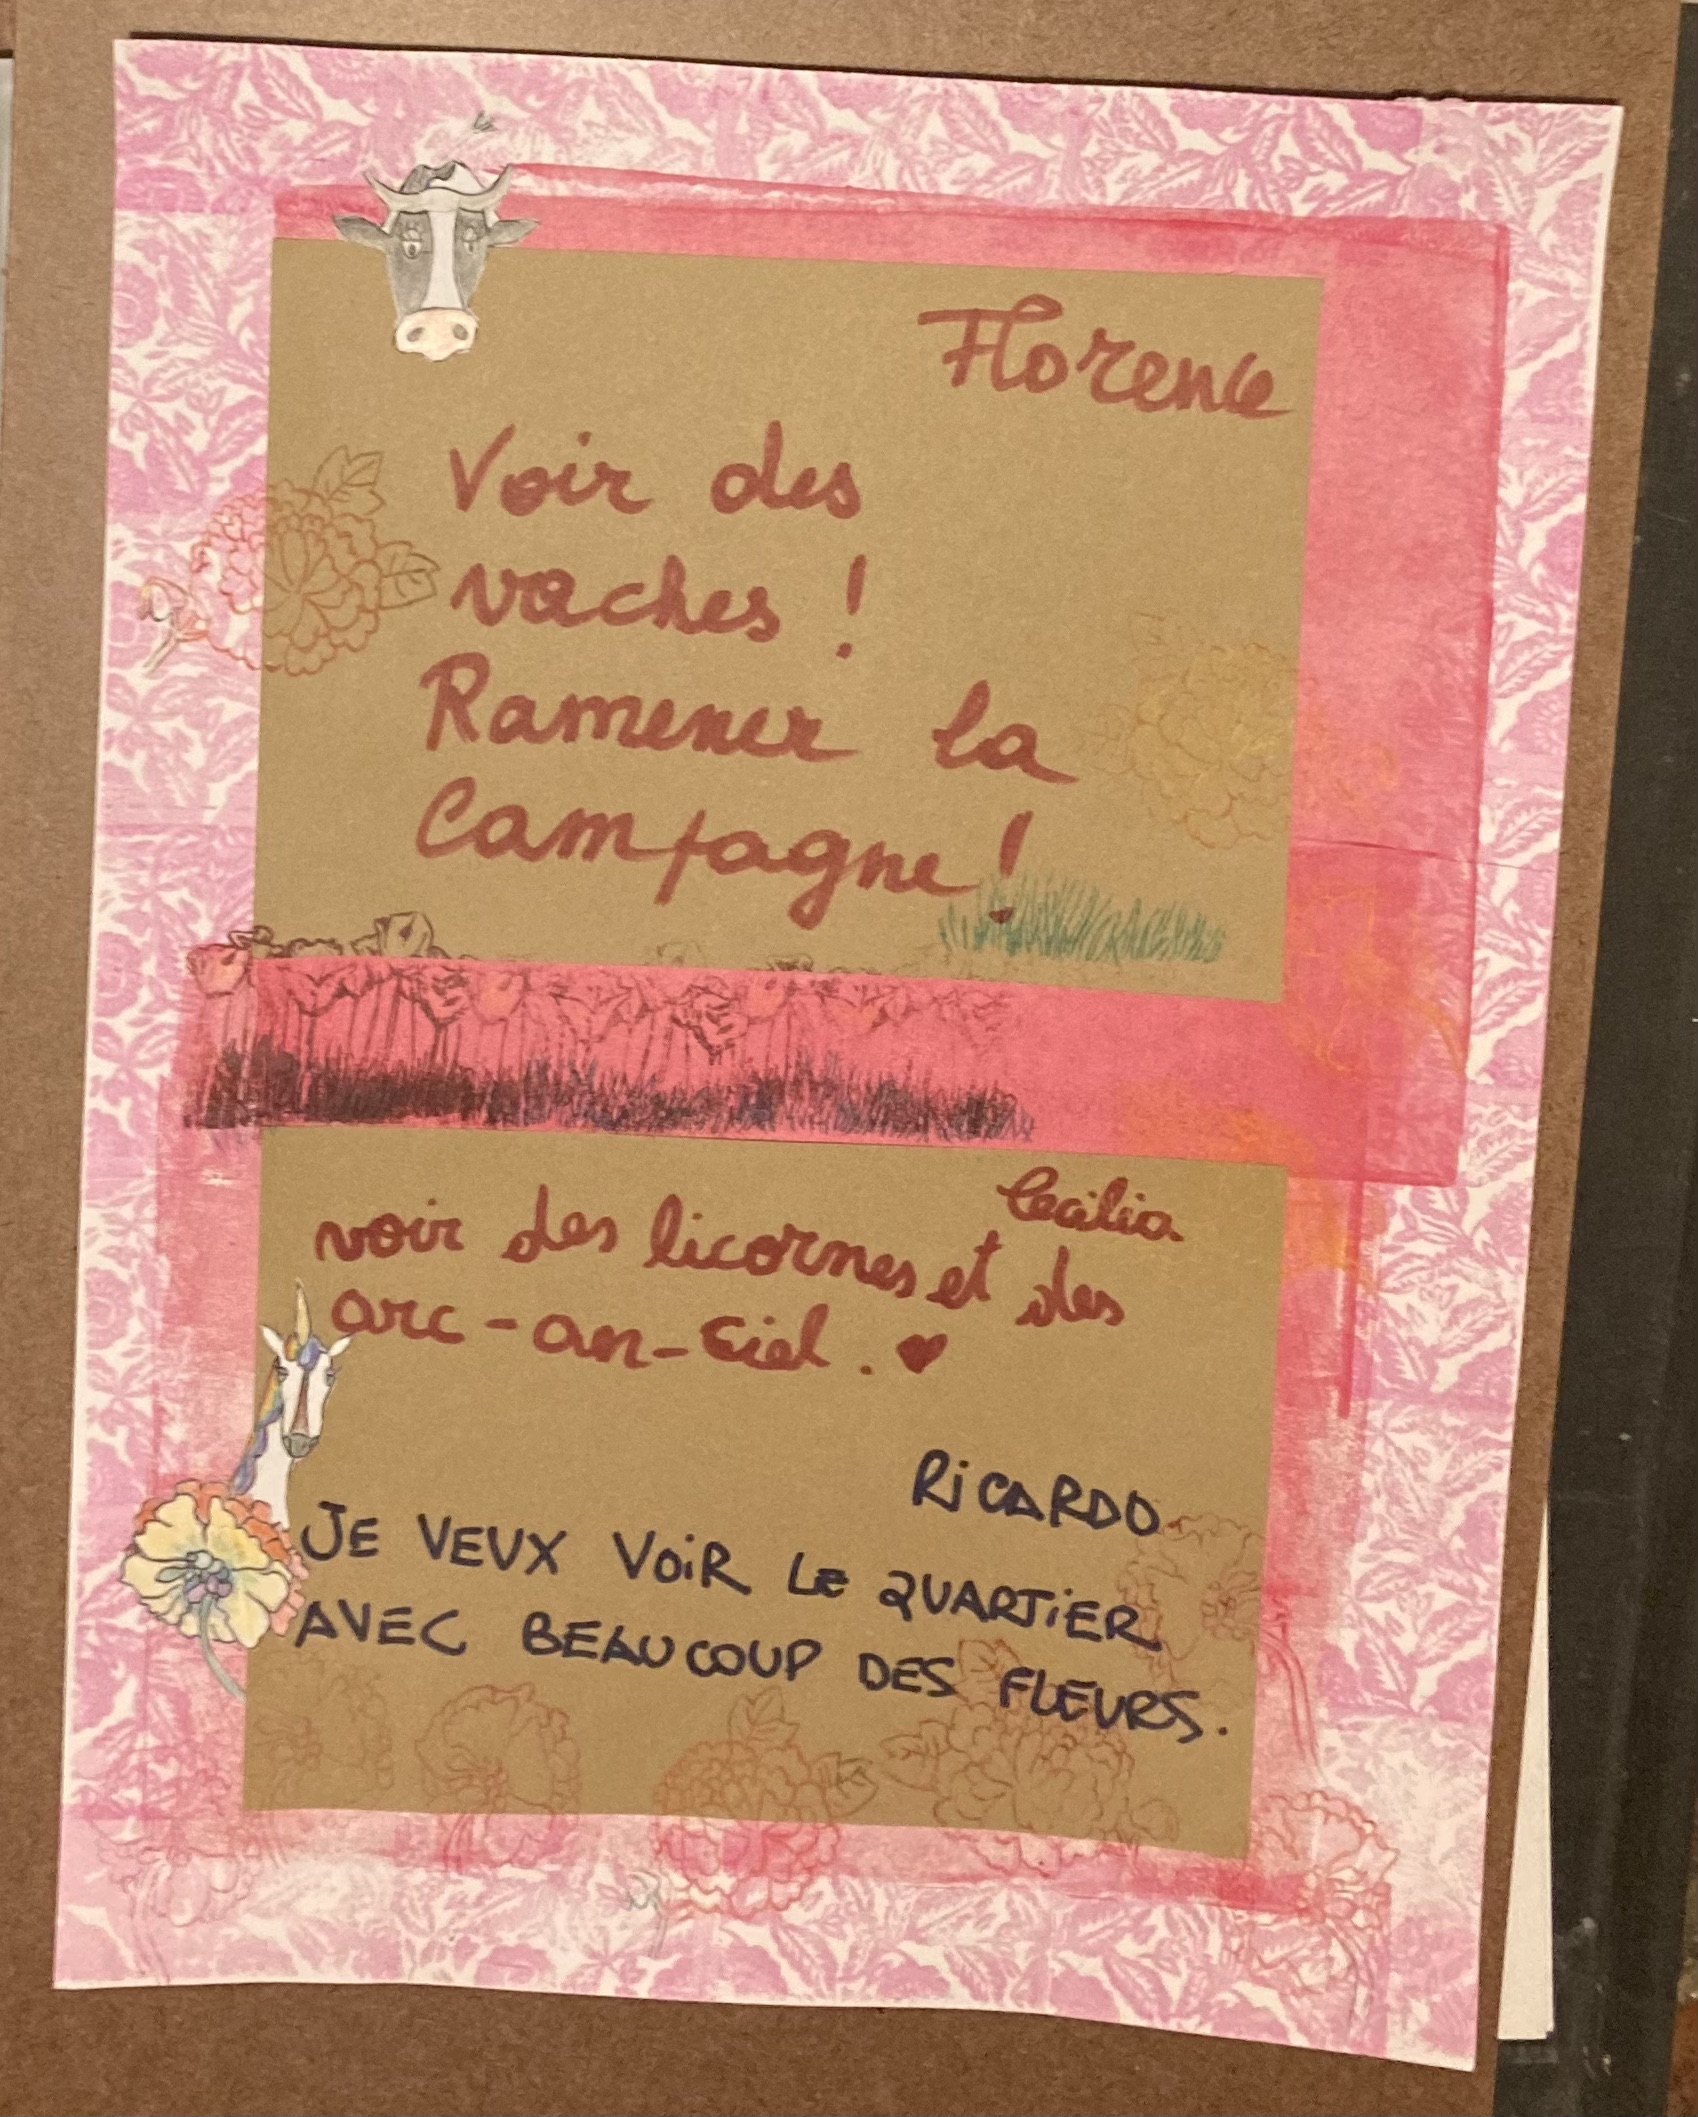 Florence
Voir des
vaches !
Ramener la
Campagne !
Cecilia
voir des licornes et des
arc-an-ciel. ♥
RiCARDO
JE VEUX VOiR LE QUARTiER
AVEC BEAUCOUP DES FLEURS.